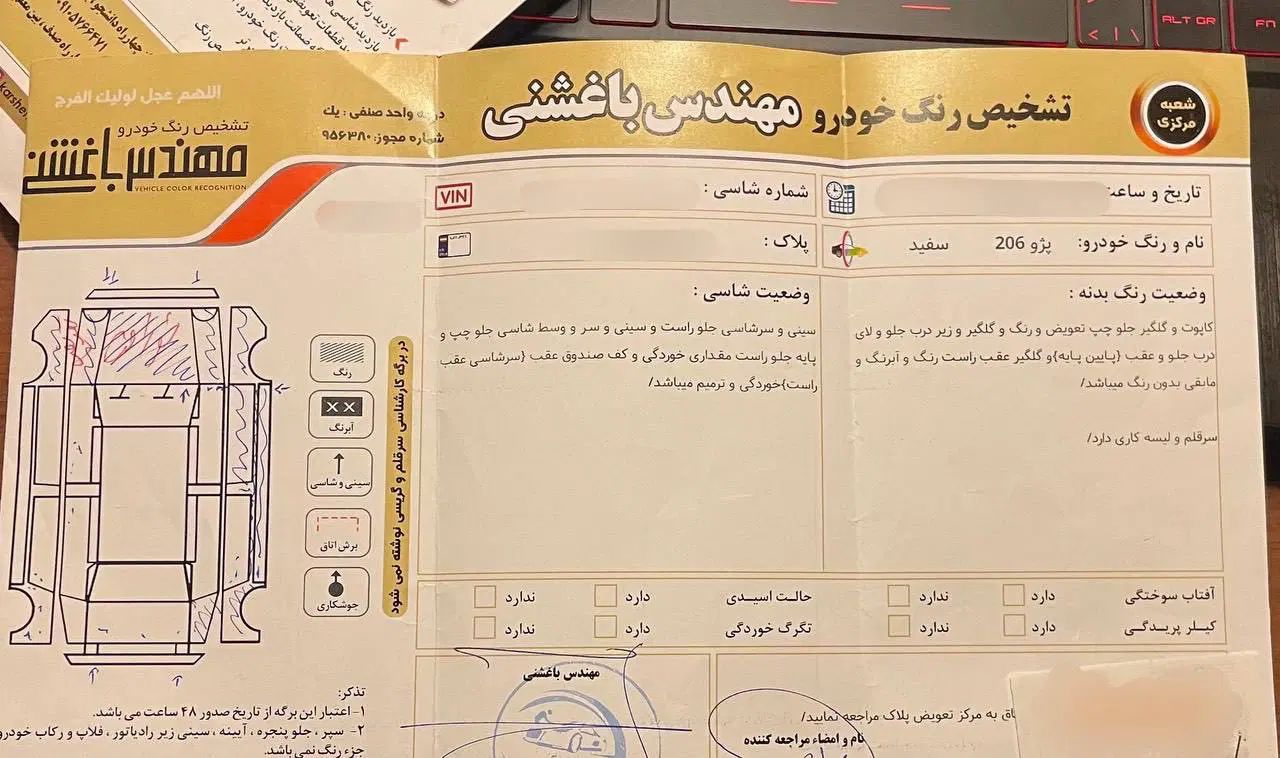 بازدید رنگ
بازدید شاسی ها
ALT GR
FN
اللهم عجل لولیک الفرج
تشخیص رنگ خودرو
مهندس باغشنی
VEHICLE COLOR RECOGNITION
واحد صنفی : یک
شماره مجوز: ۹۵۶۳۸۰
تشخیص رنگ خودرو مهندس باغشنی
شعبه
مرکزی
تاریخ و ساعت
شماره شاسی :
VIN
نام و رنگ خودرو: پژو 206 سفید
پلاک :
وضعیت رنگ بدنه :
کاپوت و گلگیر جلو چپ تعویض و رنگ و گلگیر و زیر درب جلو و لای
درب جلو و عقب {پایین پایه}و گلگیر عقب راست رنگ و آبرنگ و
مابقی بدون رنگ میباشد/
سرقلم و لیسه کاری دارد/
وضعیت شاسی :
سینی و سرشاسی جلو راست و سینی و سر و وسط شاسی جلو چپ و
پایه جلو راست مقداری خوردگی و کف صندوق عقب {سرشاسی عقب
راست}خوردگی و ترمیم میباشد/
در برگه کارشناسی سرقلم و گریسی نوشته نمی شود
رنگ
آبرنگ
سینی و شاسی
برش اتاق
جوشکاری
آفتاب سوختگی دارد ندارد
حالت اسیدی دارد ندارد
کیلر پریدگی دارد ندارد
تگرگ خوردگی دارد ندارد
مهندس باغشنی
به مرکز تعویض پلاک مراجعه نمایید/
نام و امضاء مراجعه کننده
تذکر:
۱- اعتبار این برگه از تاریخ صدور ۴۸ ساعت می باشد.
۲- سپر ، جلو پنجره ، آیینه ، سینی زیر رادیاتور ، فلاپ و رکاب خودرو
جزء رنگ نمی باشد.